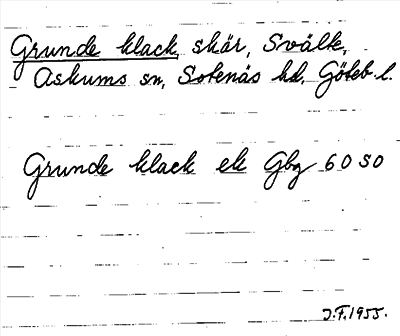 Grunde klack, skär, Svälte,
Askums sn, Sotenäs hd, Göteb. l.
Grunde klack ek Gbg 60 SO
J.F. 1955.